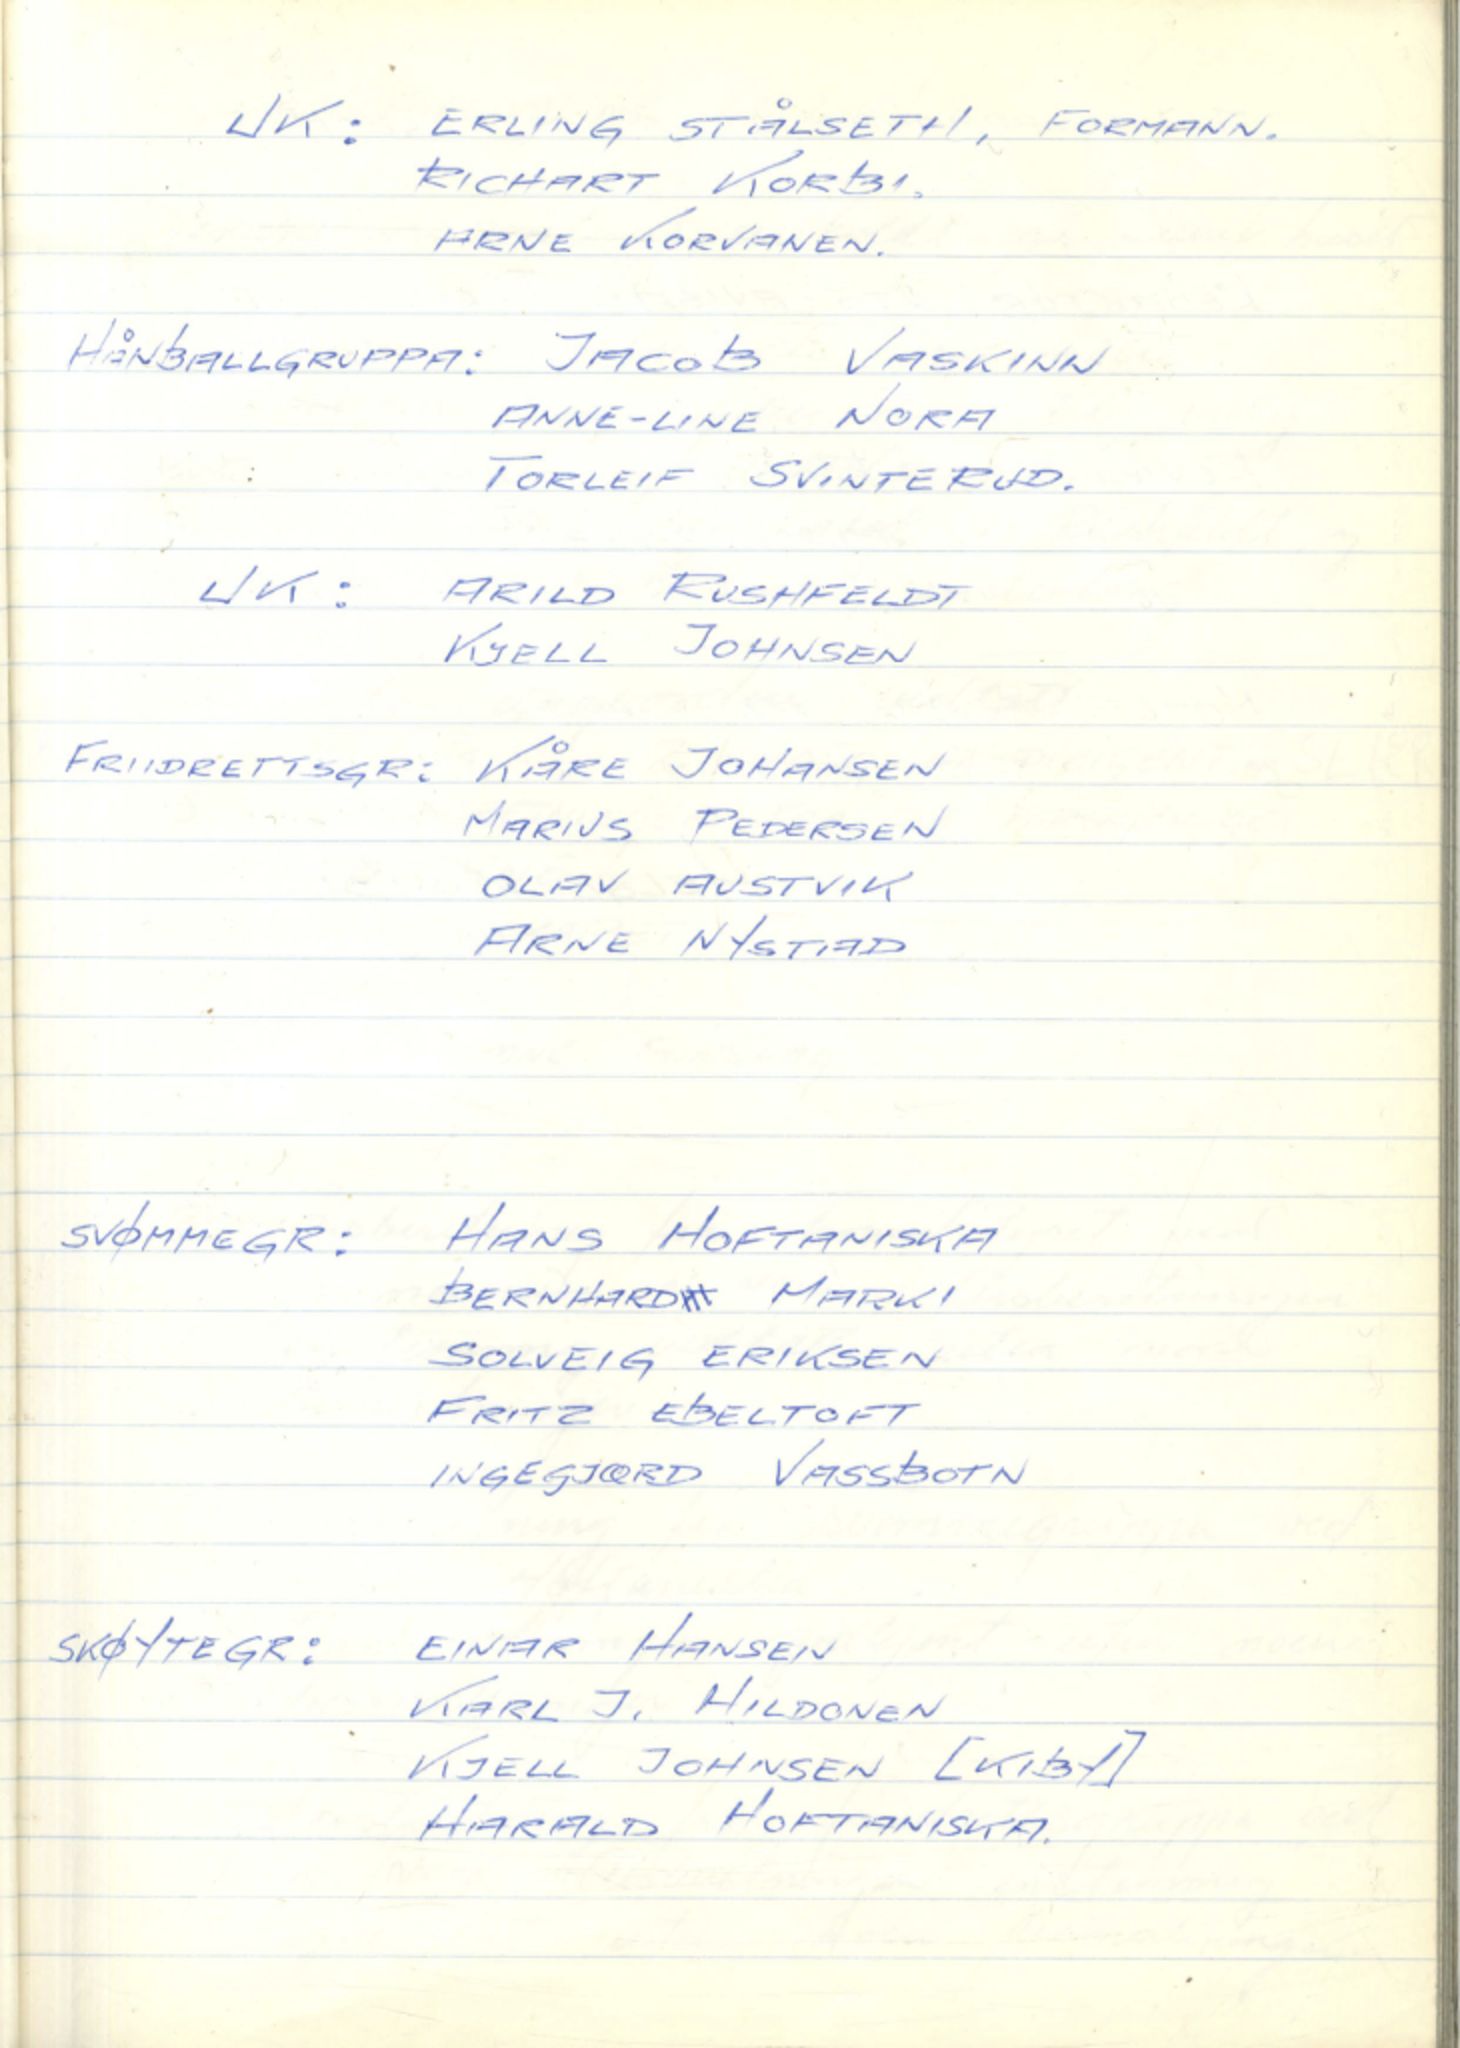 UK: ERLING STÅLSETH, FORMANN.
RICHART KORBI.
ARNE KORVANEN.
HÅNBALLGRUPPA: JACOB VASKINN
ANNE-LINE NORA
TORLEIF SVINTERUD.
UK: ARILD RUSHFELDT
KJELL JOHNSEN
FRIIDRETTSGR: KÅRE JOHANSEN
MARIUS PEDERSEN
OLAV AUSTVIK
ARNE NYSTAD
SVØMMEGR: HANS HOFTANISKA
BERNHARD MARKI
SOLVEIG ERIKSEN
FRITZ EBELTOFT
INGEGJÆRD VASSBOTN
SKØYTEGR: EINAR HANSEN
KARL J. HILDONEN
KJELL JOHNSEN [KIBY]
HARALD HOFTANISKA.